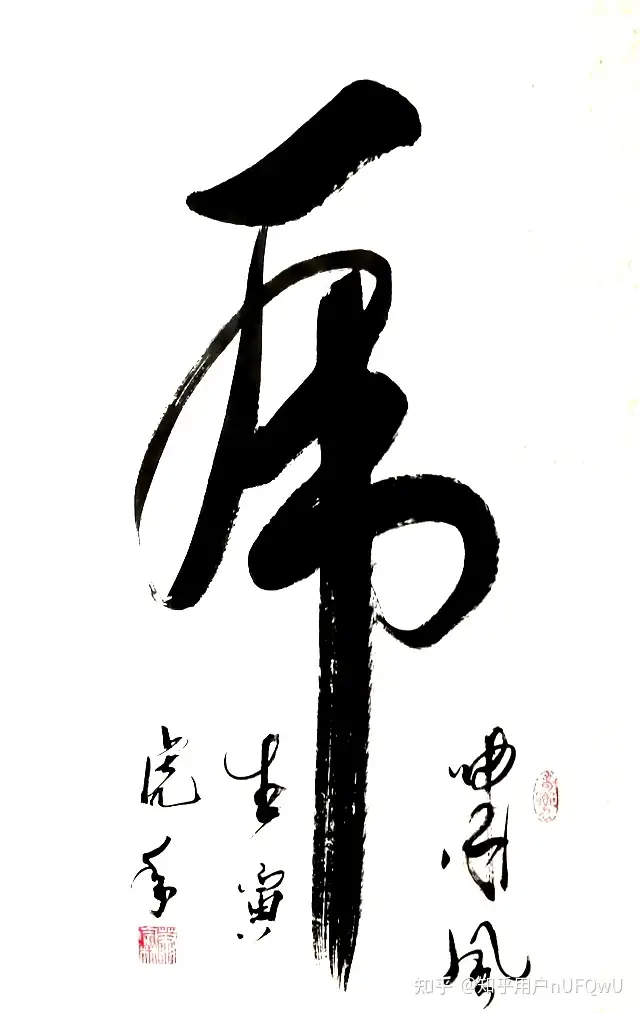 虎
嘯風
生寅
虎年
知乎 @知乎用户nUFQwU